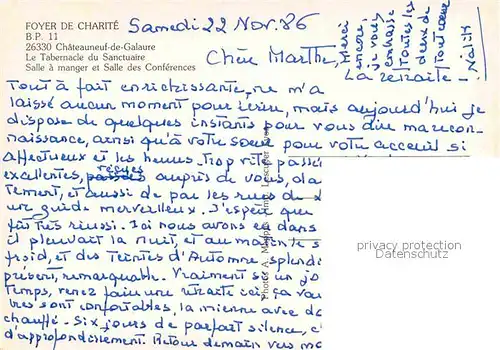 FOYER DE CHARITÉ
B.P. 11
26330 Châteauneuf-de-Galaure
Le Tabernacle du Sanctuaire
Salle à manger et Salle des Conférences
Samedi 22 Nov. 86
Chère Marthe,
La retraite -
Tout à fait enrichissante, ne m'a
laissé aucun moment pour écrire, mais aujourd'hui je
dispose de quelques instants pour vous dire ma recon-
naissance, ainsi qu'à votre sœur pour votre accueil si
affectueux et les heures trop vite passé
excellentes, reçues auprès de vous, da
tement, et aussi de par les rues de
un guide merveilleux. J'espère que
très réussi. Ici nous avons eu dans
il pleuvait la nuit, et au
froid, et des teintes d'Automne splendi
présent, remarquable. Vraiment si un jo
temps, venez faire une retraite ici, ça va
bres sont confortables, la mienne avec de
chauffé. Six jours de parfait silence, c'
d'approfondissement. Retour demain vers mo
Merci
encore,
je vous
embrasse
toutes les
deux de
tout cœur
privacy protection
Datenschutz